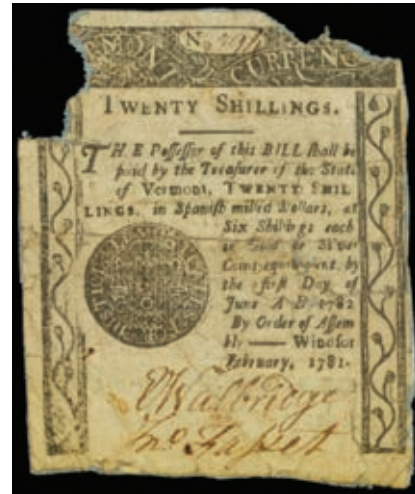 MONT CURRENC
No
TWENTY SHILLINGS.
THE Poſſeſſor of this BILL ſhall be
paid by the Treaſurer of the State
of Vermont, TWENTY SHIL-
LINGS, in Spaniſh milled Dollars, at
Six Shillings each
or Gold or Silver
Coins equivalent, by
the firſt Day of
June A D. 1782
By Order of Aſſem
bly — Windſor
February, 1781.
E Walbridge
Jno Faſset